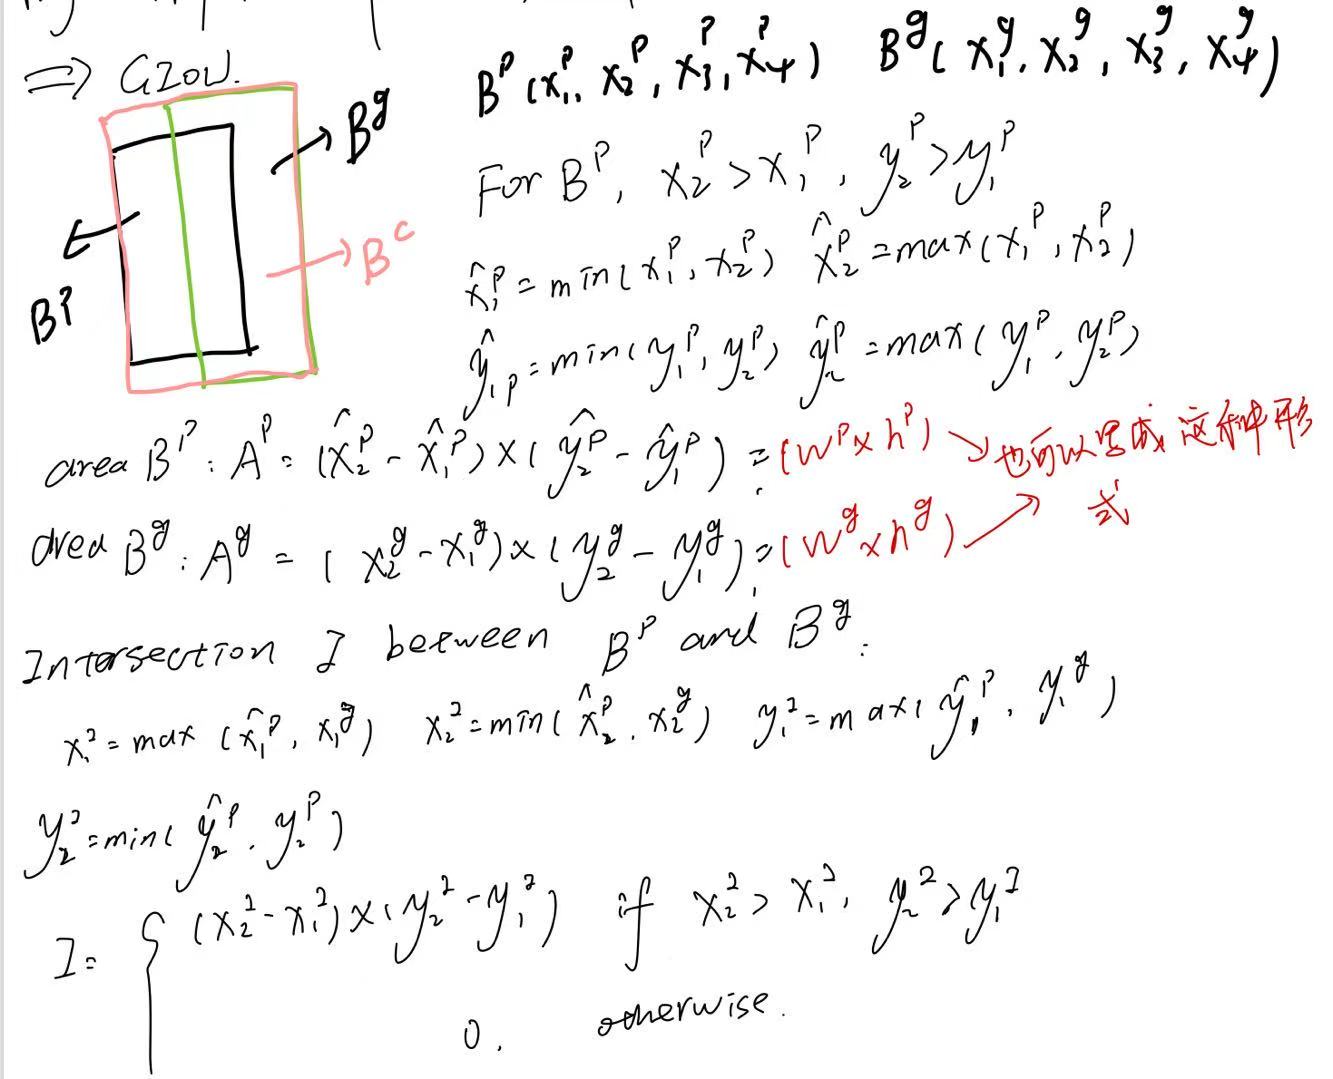 ⇒ GIOU.
B^P (x_1^P, x_2^P, x_3^P, x_4^P) B^g (x_1^g, x_2^g, x_3^g, x_4^g)
B^g
For B^P, x_2^P > x_1^P, y_2^P > y_1^P
B^c
x̂_1^P = min(x_1^P, x_2^P) x̂_2^P = max(x_1^P, x_2^P)
B^P
ŷ_1^P = min(y_1^P, y_2^P) ŷ_2^P = max(y_1^P, y_2^P)
area B^P : A^P = (x̂_2^P - x̂_1^P) × (ŷ_2^P - ŷ_1^P) = (w^P × h^P) 也可以写成这种形
式
area B^g : A^g = (x_2^g - x_1^g) × (y_2^g - y_1^g) = (w^g × h^g)
Intersection I between B^P and B^g :
x_1^I = max (x̂_1^P, x_1^g) x_2^I = min(x̂_2^P, x_2^g) y_1^I = max(ŷ_1^P, y_1^g)
y_2^I = min(ŷ_2^P, y_2^P)
I = { (x_2^I - x_1^I) × (y_2^I - y_1^I) if x_2^I > x_1^I, y_2^I > y_1^I
0, otherwise.